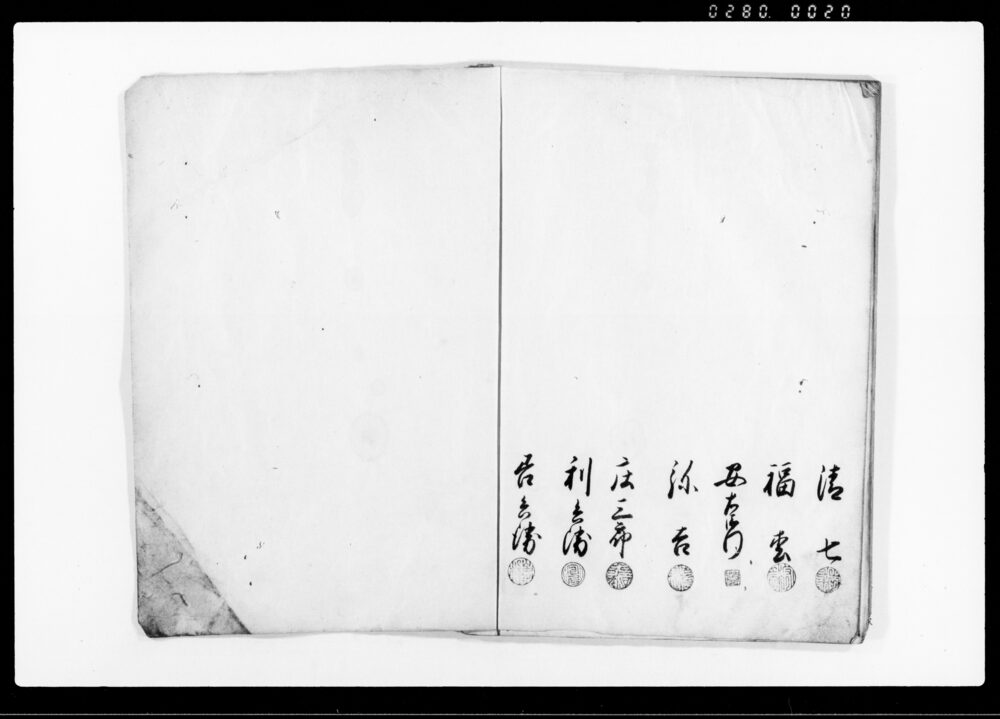 0280. 0020
清七
福雲
安左衛門
弥吉
庄三郎
利兵衛